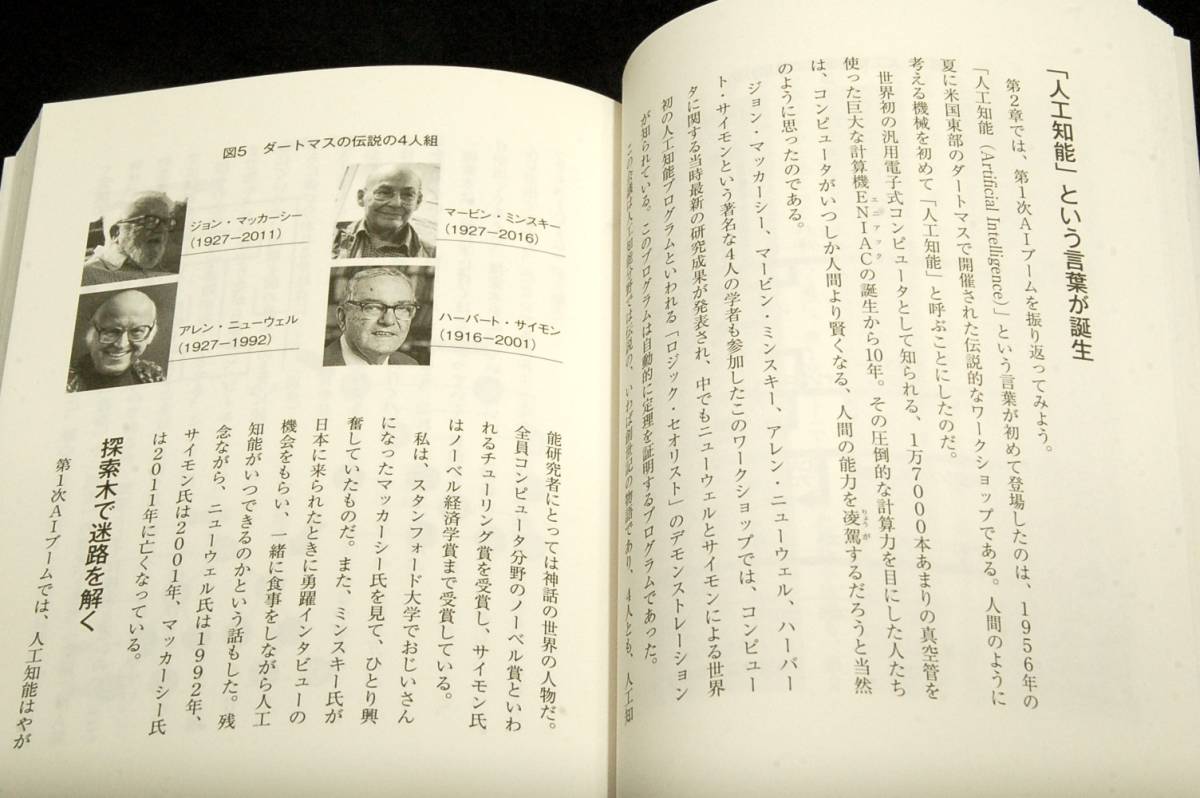 「人工知能」という言葉が誕生
第2章では、第1次AIブームを振り返ってみよう。
「人工知能（Artificial Intelligence）」という言葉が初めて登場したのは、1956年の
夏に米国東部のダートマスで開催された伝説的なワークショップである。人間のように
考える機械を初めて「人工知能」と呼ぶことにしたのだ。
世界初の汎用電子式コンピュータとして知られる、1万7000本あまりの真空管を
使った巨大な計算機ENIACの誕生から10年。その圧倒的な計算力を目にした人たち
エニアック
は、コンピュータがいつしか人間より賢くなる、人間の能力を凌駕するだろうと当然
りょうが
のように思ったのである。
ジョン・マッカーシー、マービン・ミンスキー、アレン・ニューウェル、ハーバー
ト・サイモンという著名な4人の学者も参加したこのワークショップでは、コンピュー
タに関する当時最新の研究成果が発表され、中でもニューウェルとサイモンによる世界
初の人工知能プログラムといわれる「ロジック・セオリスト」のデモンストレーション
が知られている。このプログラムは自動的に定理を証明するプログラムであった。
この会議は人工知能分野では伝説の、いわば創世記の物語であり、4人とも、人工知
図5　ダートマスの伝説の4人組
ジョン・マッカーシー
(1927−2011)
マービン・ミンスキー
(1927−2016)
アレン・ニューウェル
(1927−1992)
ハーバート・サイモン
(1916−2001)
能研究者にとっては神話の世界の人物だ。
全員コンピュータ分野のノーベル賞といわ
れるチューリング賞を受賞し、サイモン氏
はノーベル経済学賞まで受賞している。
私は、スタンフォード大学でおじいさん
になったマッカーシー氏を見て、ひとり興
奮していたものだ。また、ミンスキー氏が
日本に来られたときに勇躍インタビューの
機会をもらい、一緒に食事をしながら人工
知能がいつできるのかという話もした。残
念ながら、ニューウェル氏は1992年、
サイモン氏は2001年、マッカーシー氏
は2011年に亡くなっている。
探索木で迷路を解く
第1次AIブームでは、人工知能はやが